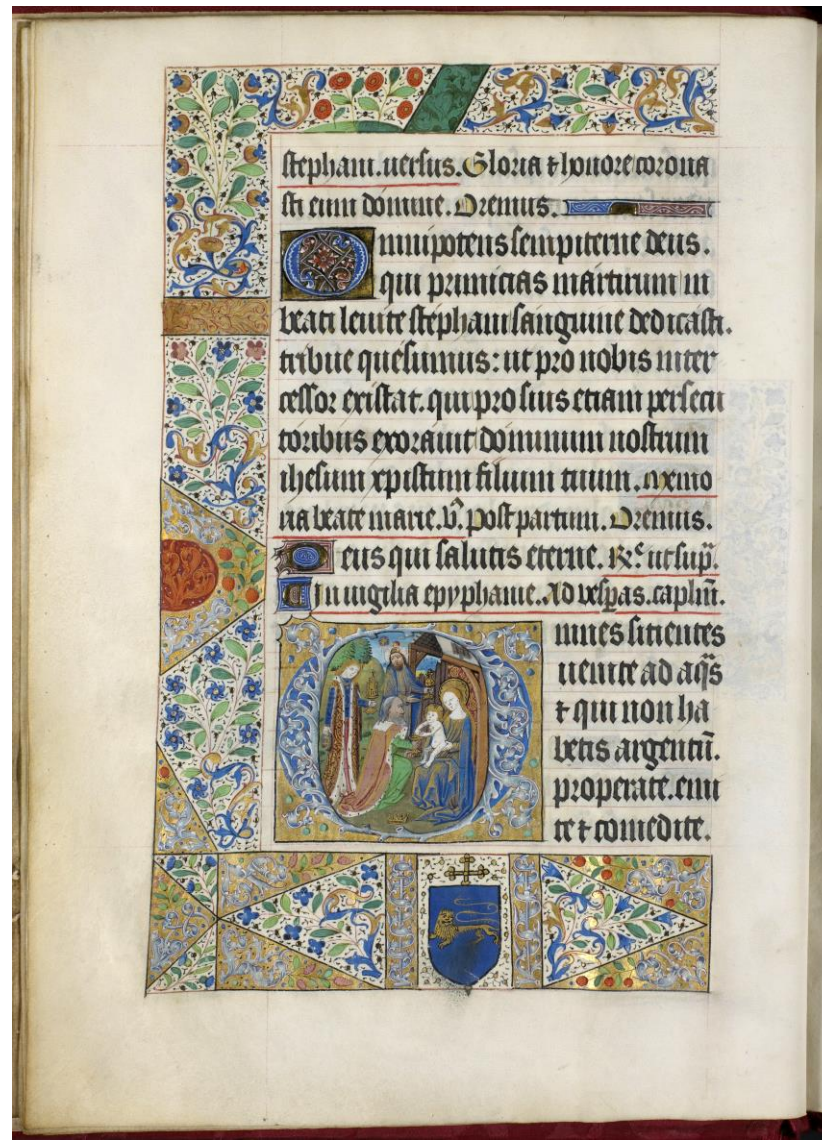 stephani. uersus. Gloria ⁊ honore corona
sti eum domine. Oremus.
Omnipotens sempiterne deus.
qui primicias martirum in
beati leuite stephani sanguine dedicasti.
tribue quesumus: ut pro nobis inter
cessor existat. qui pro suis etiam persecu
toribus exorauit dominum nostrum
ihesum xpistum filium tuum. Memo
ria beate marie. V̄. Post partum. Oremus.
Deus qui salutis eterne. Rc̄. ut sup̄.
In uigilia epyphanie. Ad vesp̄as. caplm̄.
Omnes sitientes
uenite ad aq̄s
⁊ qui non ha
betis argentū.
properate. emi
te ⁊ comedite.